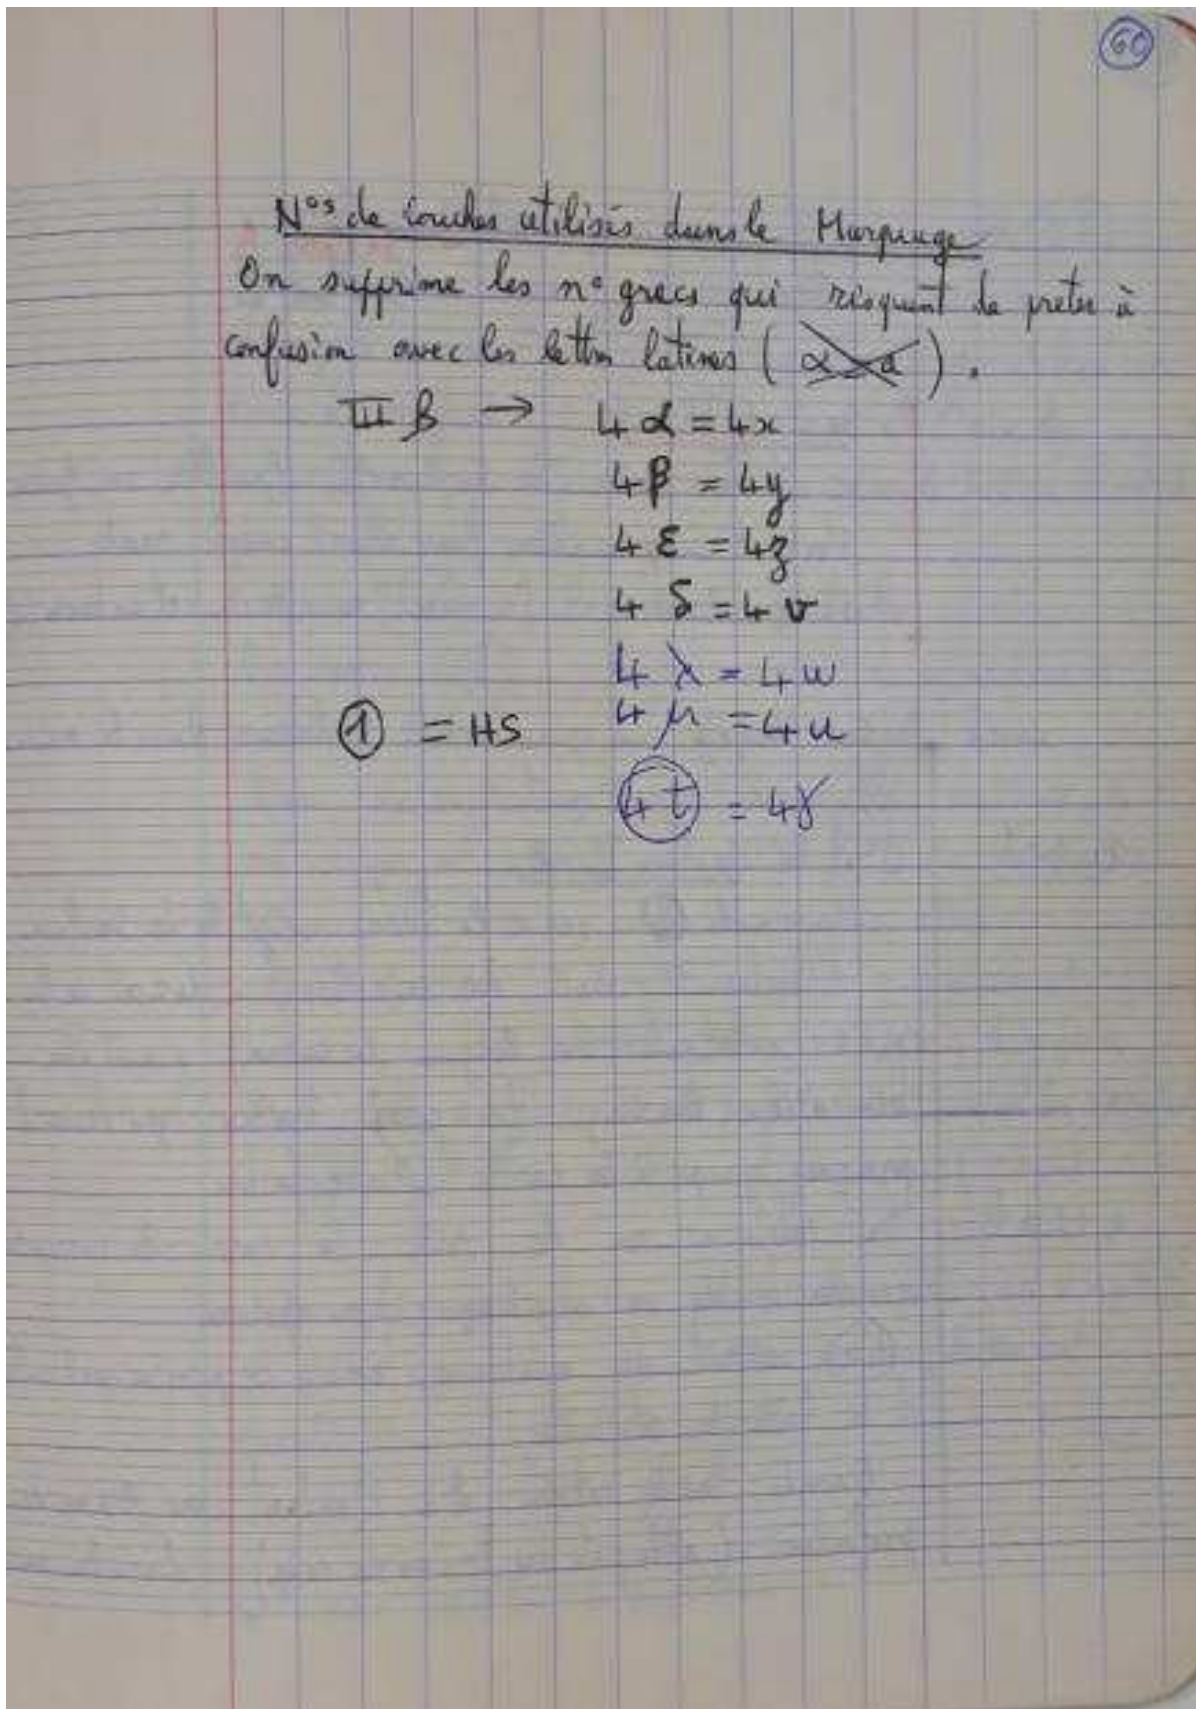 60
N°s de couches utilisés dans le Marquage
On supprime les n° grecs qui risquent de preter à
confusion avec les lettres latines ( α a ).
III β → 4 α = 4x
4 β = 4y
4 ε = 4z
4 δ = 4 v
4 λ = 4 w
① = HS 4 μ = 4 u
4 t = 4γ